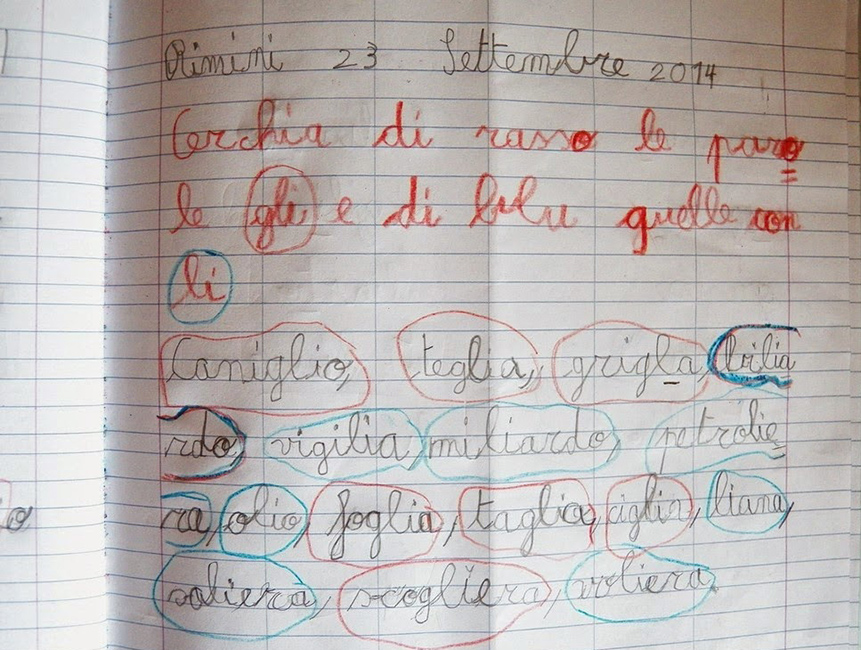 Rimini 23 Settembre 2014
Cerchia di rosso le paro
le gli e di blu quelle con
li
Coniglio, teglia, grigla, bilia
rdo, vigilia, miliardo, petrolie
ra, olio, foglia, taglia, ciglia, liana,
saliera, scogliera, voliera.
o